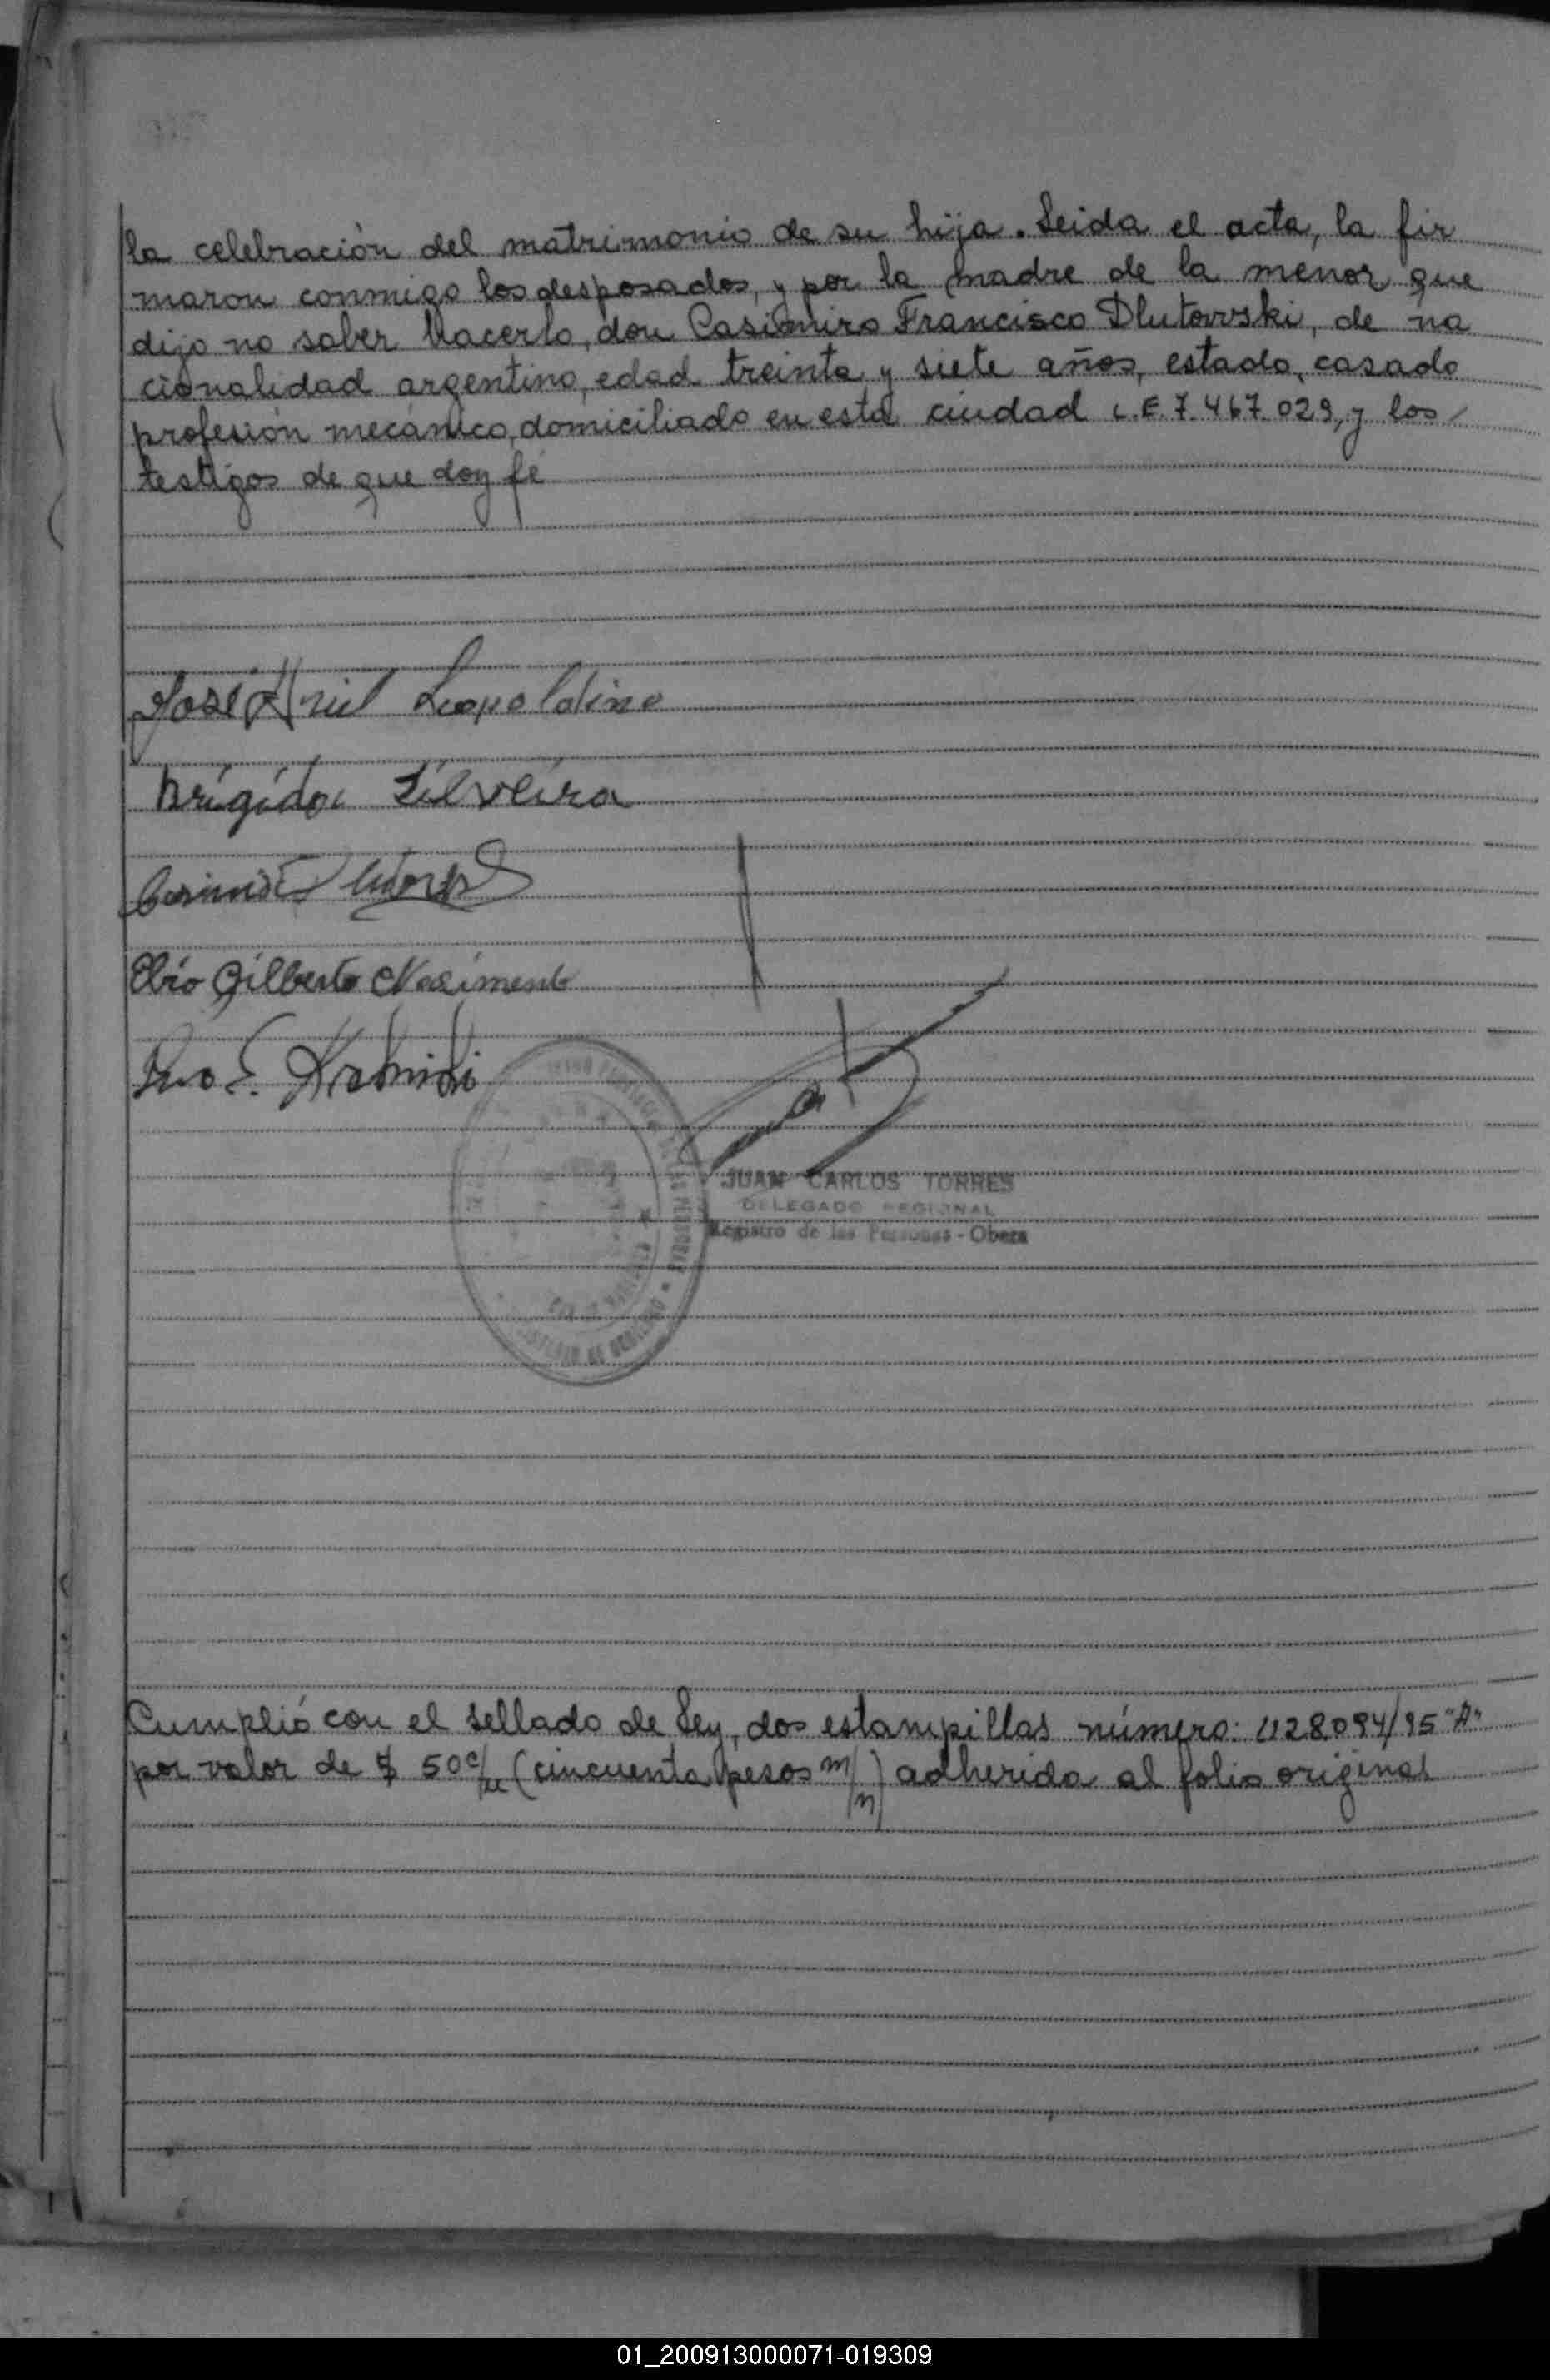 la celebración del matrimonio de su hija. Leida el acta, la fir
maron conmigo los desposados, y por la madre de la menor que
dijo no saber hacerlo, don Casimiro Francisco Dlutowski, de na
cionalidad argentino, edad treinta y siete años, estado, casado
profesión mecánico, domiciliado en esta ciudad L.E. 7.467.029, y los
testigos de que doy fé
José Leopoldino
brígida Silveira
Elio Gilberto Nacimento
JUAN CARLOS TORRES
DELEGADO REGIONAL
Registro de las Personas - Obera
Cumplió con el sellado de Ley, dos estampillas número: 1128094/95 "A"
por valor de $ 50 c/u (cincuenta pesos m/n) adherida al folio original
01_200913000071-019309